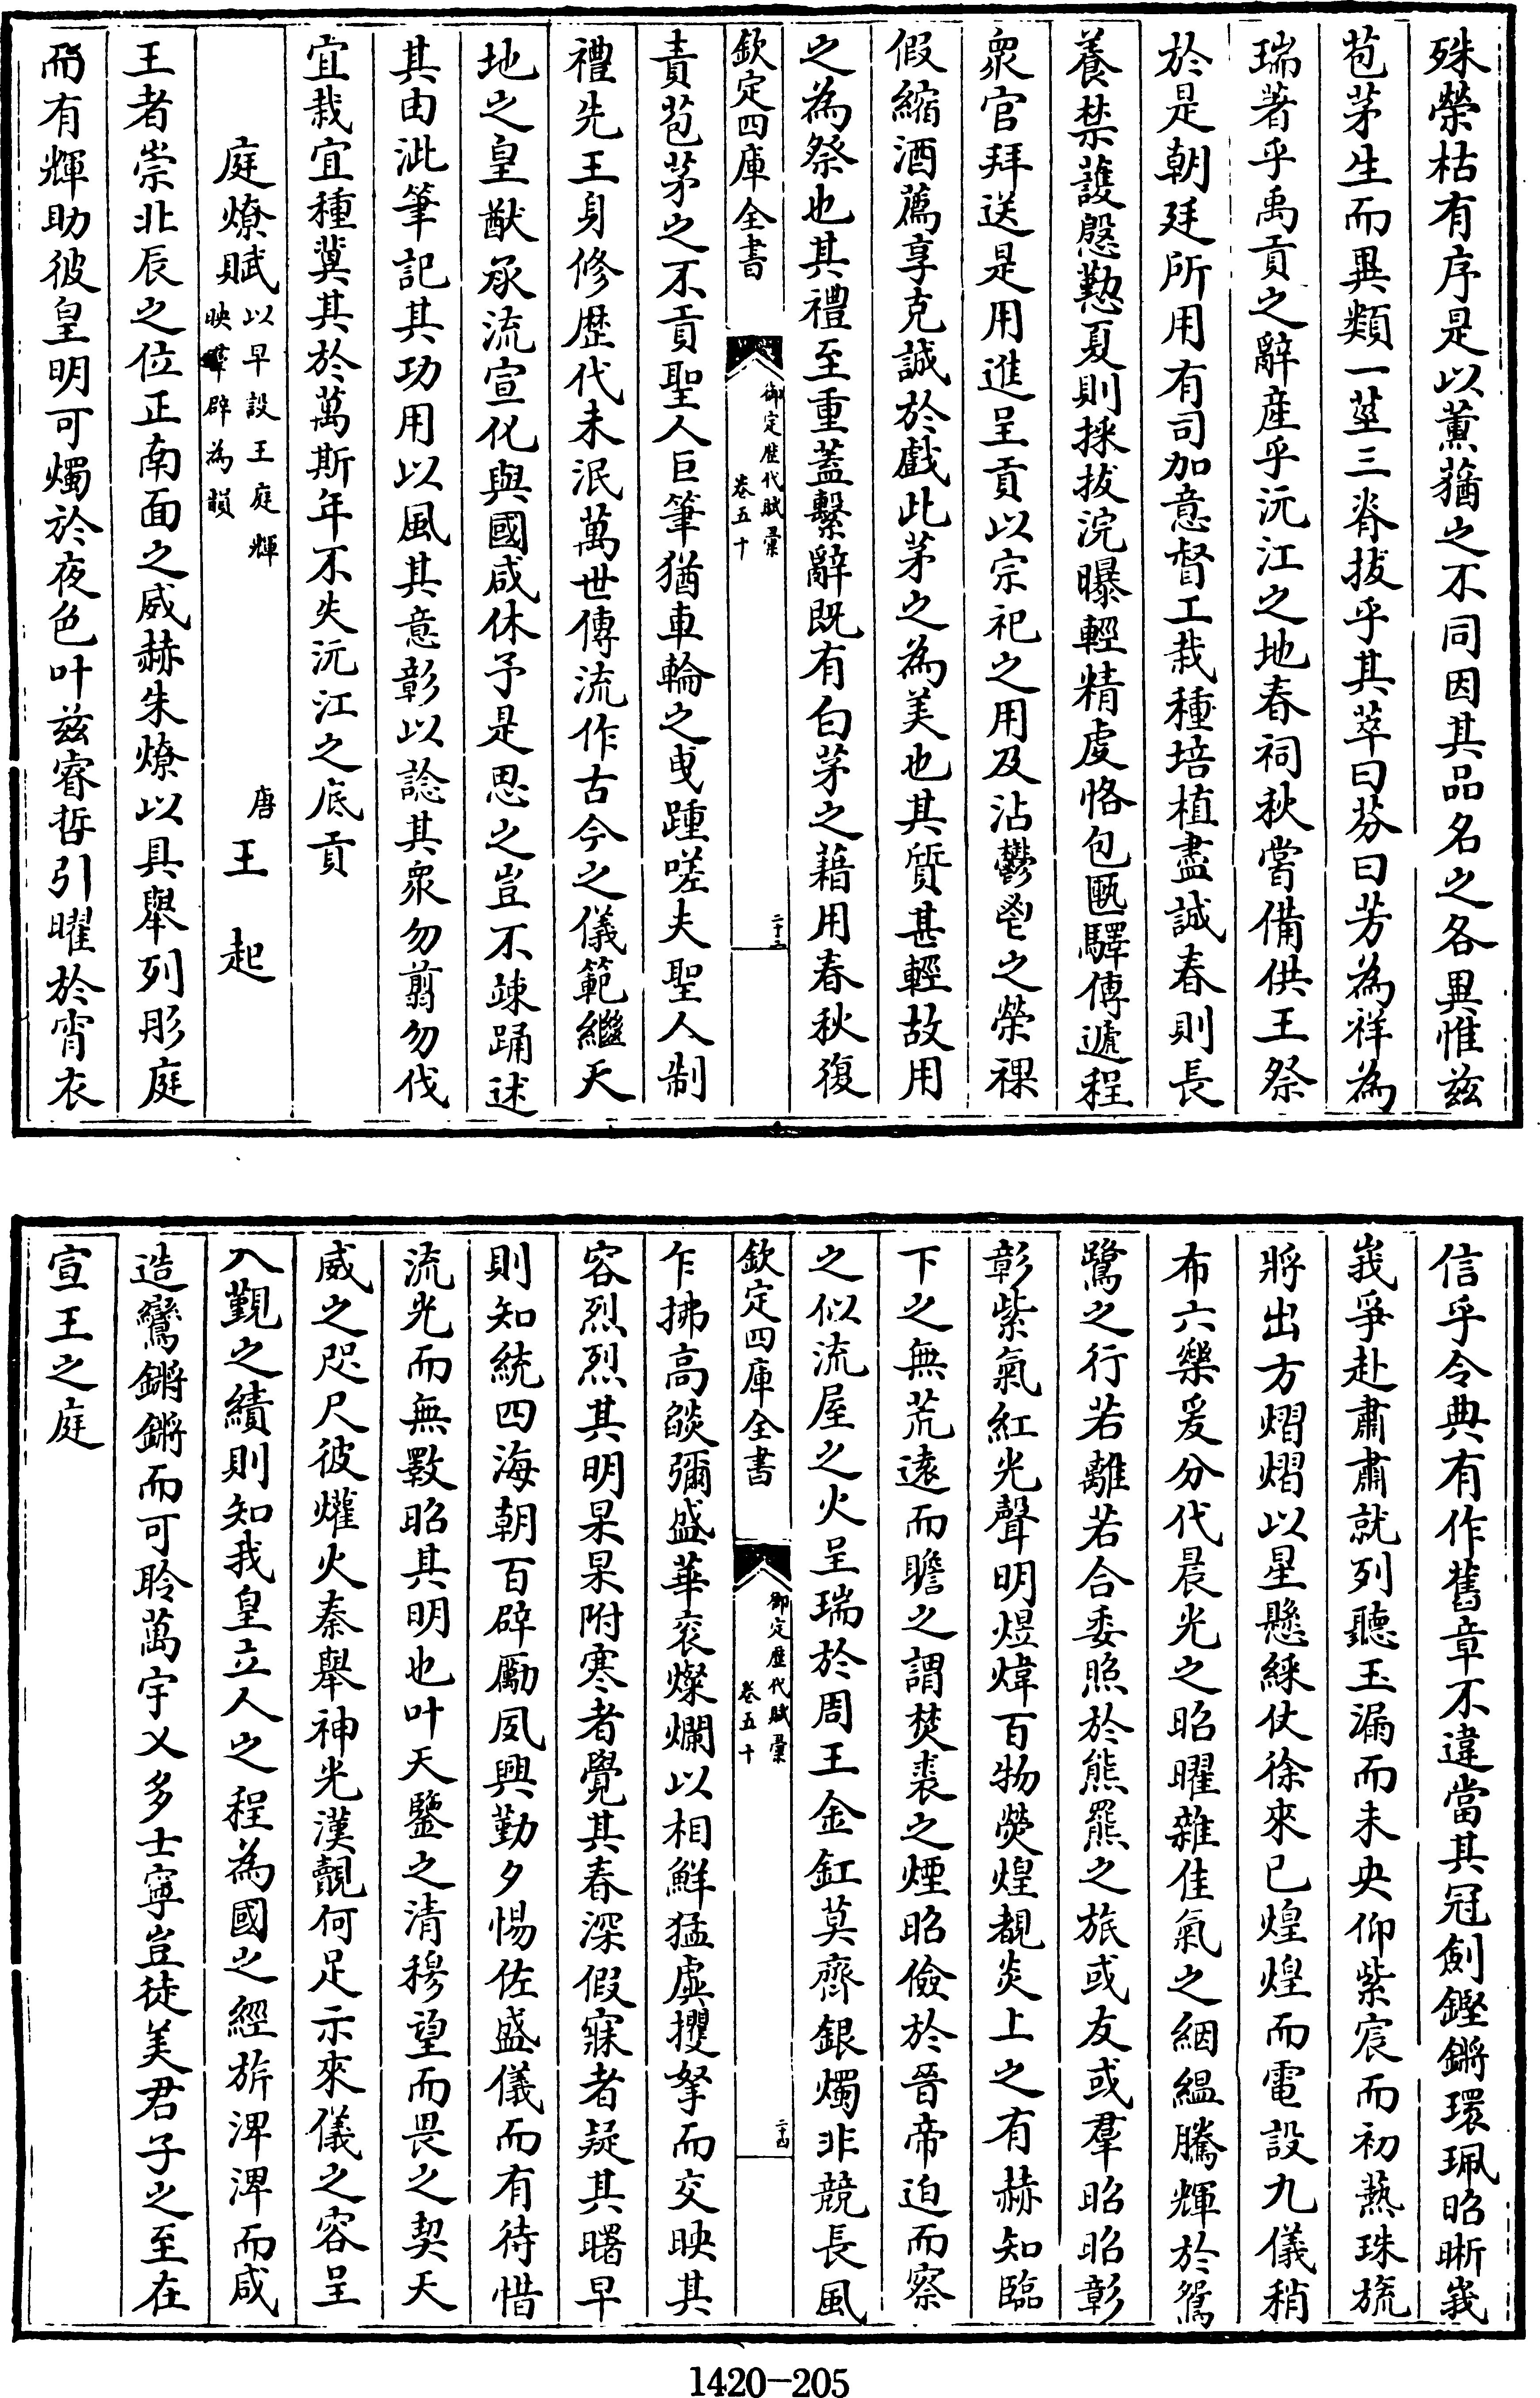 殊榮枯有序是以薰蕕之不同因其品名之各異惟兹
苞茅生而異類一莖三脊拔乎其萃曰芬曰芳為祥為
瑞著乎禹貢之辭産乎沅江之地春祠秋嘗備供王祭
於是朝廷所用有司加意督工栽種培植盡誠春則長
養禁䕶慇懃夏則採拔浣曝輕精虔恪包匭驛傳遞程
衆官拜送是用進呈貢以宗祀之用及沾鬱鬯之榮祼
假縮酒薦享克誠於戲此茅之為美也其質甚輕故用
之為祭也其禮至重蓋繫辭既有白茅之藉用春秋復
欽定四庫全書
御定歴代賦彙
卷五十
二十三
責苞茅之不貢聖人巨筆猶車輪之曳踵嗟夫聖人制
禮先王身修歴代未泯萬世傳流作古今之儀範繼天
地之皇猷承流宣化與國咸休予是思之豈不踈踊述
其由泚筆記其功用以風其意彰以諗其衆勿翦勿伐
宜栽宜種冀其於萬斯年不失沅江之底貢
庭燎賦
以早設王庭輝
映羣辟為韻
唐
王起
王者崇北辰之位正南面之威赫朱燎以具舉列彤庭
而有輝助彼皇明可燭於夜色叶兹睿哲引曜於宵衣
信乎令典有作舊章不違當其冠劍鏗鏘環珮昭晰峩
峩爭赴肅肅就列聽玉漏而未央仰紫宸而初爇珠旒
將出方熠熠以星懸綵仗徐來已煌煌而電設九儀稍
布六樂爰分代晨光之昭曜雜佳氣之絪縕騰輝於鴛
鷺之行若離若合委照於熊羆之旅或友或羣昭昭彰
彰紫氣紅光聲明煜煒百物熒煌覩炎上之有赫知臨
下之無荒逺而瞻之謂焚裘之煙昭儉於晉帝迫而察
之似流屋之火呈瑞於周王金釭莫齊銀燭非競長風
欽定四庫全書
御定歴代賦彙
卷五十
二十四
乍拂高燄彌盛華衮燦爛以相鮮猛虡攫拏而交映其
容烈烈其明杲杲附寒者覺其春深假寐者疑其曙早
則知統四海朝百辟勵夙興勤夕惕佐盛儀而有待惜
流光而無斁昭其明也叶天鑒之清穆望而畏之契天
威之咫尺彼爟火秦舉神光漢覿何足示來儀之容呈
入覲之績則知我皇立人之程為國之經旂淠淠而咸
造鸞鏘鏘而可聆萬宇乂多士寧豈徒美君子之至在
宣王之庭
1420-205